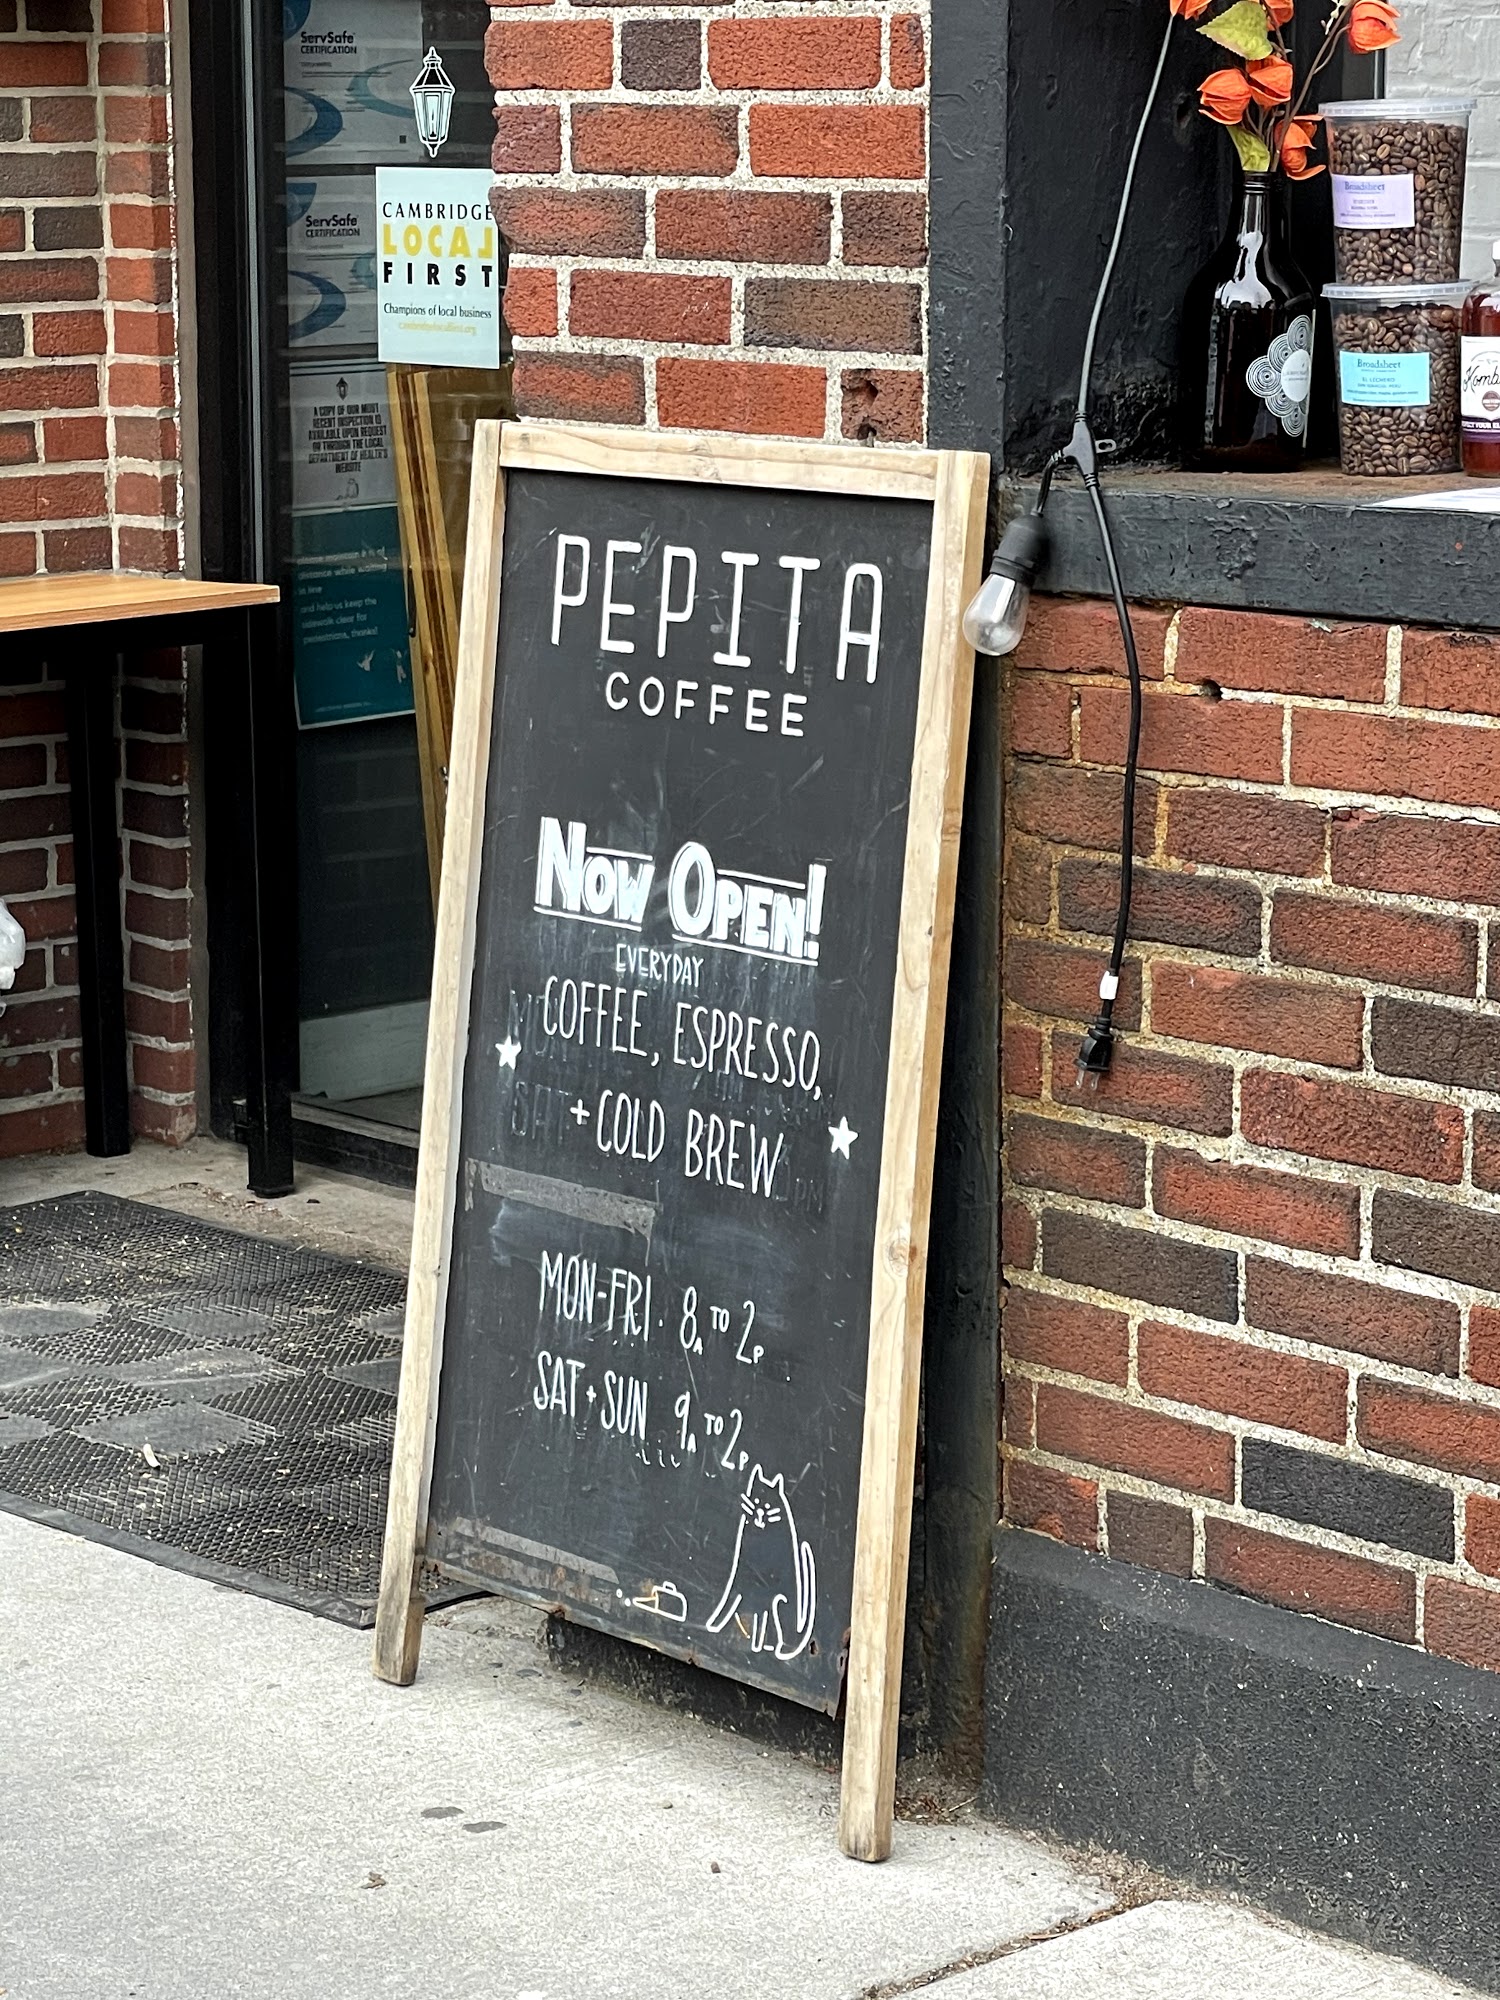 ServSafe
CERTIFICATION
ServSafe
CERTIFICATION
CAMBRIDGE
LOCAL
FIRST
Champions of local business
cambridgelocalfirst.org
A COPY OF OUR MOST
RECENT INSPECTION IS
AVAILABLE UPON REQUEST
OR THROUGH THE LOCAL
DEPARTMENT OF HEALTH'S
WEBSITE
distance while waiting
in line
and help us keep the
sidewalk clear for
pedestrians, thanks!
PEPITA
COFFEE
NOW OPEN!
EVERYDAY
COFFEE, ESPRESSO,
+ COLD BREW
MON-FRI. 8A TO 2P
SAT + SUN 9A TO 2P
Broadsheet
Broadsheet
EL LECHERO